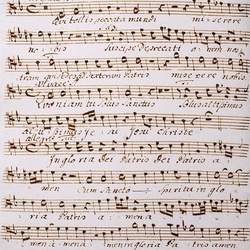 Qui tollis peccata mundi miserere
nobis Suscipe deprecati o nem nos
tram qui sedes ad dexteram Patris miserere nobis
Vivace
Quoniam tu solus Sanctus Solus altissimus
Je su Jesu Christe
Allegro
In gloria Dei Patris Dei Patris a
men Cum Sancto Spiritu in glo
ria Patris amen a
men a men a men in gloria Patris amen